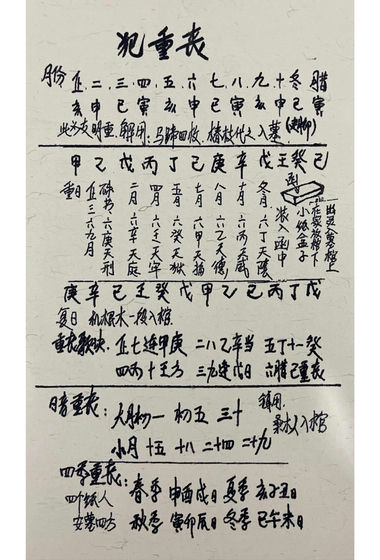 犯重丧
月份 正.二.三.四.五.六.七.八.九.十.冬.腊
亥申巳寅亥申巳寅亥申巳寅
此为支明重.解用:马蹄四枚.桔枝代之入墓
甲乙戊丙丁己庚辛戊壬癸己
重日
正三六九月
六庚天刑
二月 六辛天庭
四月 六壬天牢
五月 六癸天狱
七月 六甲天福
八月 六乙天德
十月 六丙天威
冬月 六丁天阴
装入函中
函
小纸盒子
在家放棺下
出灵入墓棺上
庚辛己壬癸戊甲乙己丙丁戊
复日 根木一段入棺
重丧歌诀. 正七连甲庚 二八乙辛当 五丁十一癸
四丙十壬方 三九连戊日 六腊己重丧
暗重丧: 大月初一 初五 三十 镇用.
桑木人入棺
小月 十五 十八 二十四 二十九
四季重丧:
四个纸人 春季 申酉戌日 夏季 亥子丑日
安墓四方 秋季 寅卯辰日 冬季 巳午未日